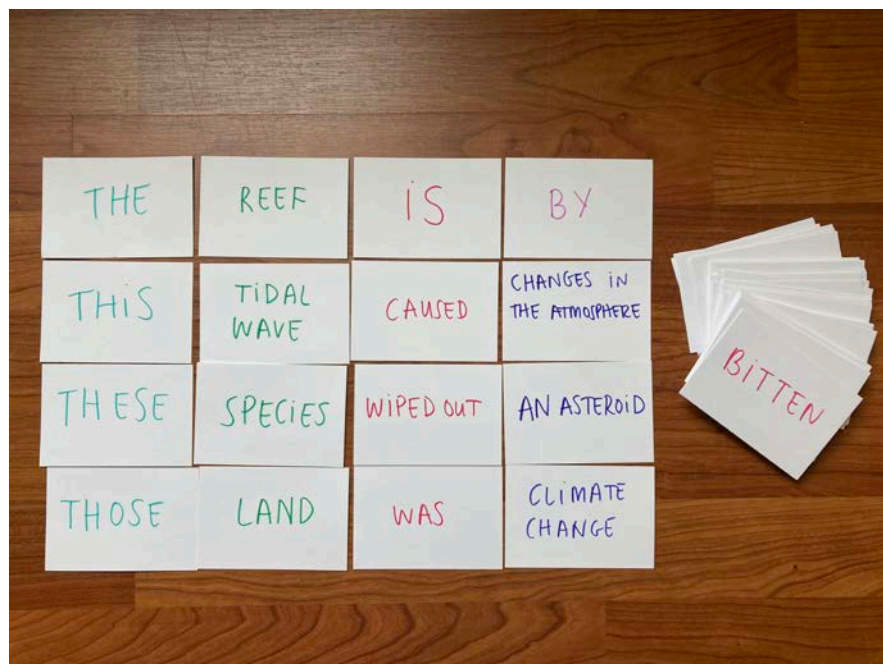 THE
REEF
iS
BY
THiS
TiDAL
WAVE
CAUSED
CHANGES iN
THE ATMOSPHERE
THESE
SPECiES
WiPED OUT
AN ASTEROiD
THOSE
LAND
WAS
CLiMATE
CHANGE
BiTTEN